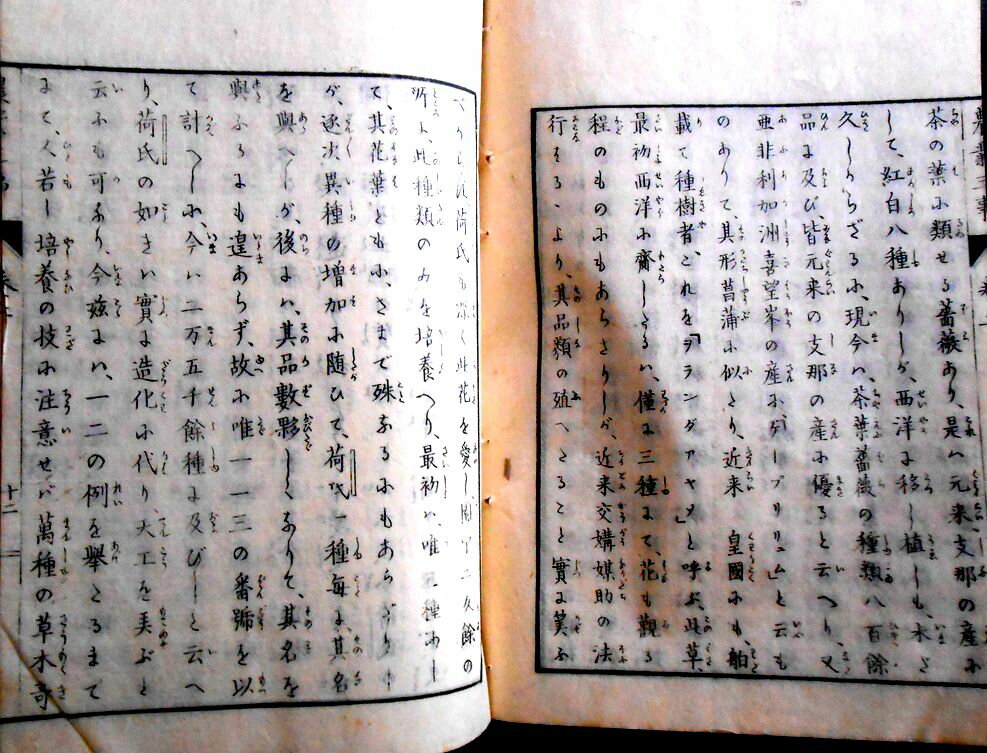 農業三事
茶の葉に類せる薔薇あり、是ハ元来支那の産に
して、紅白八種ありしが、西洋に移し植しも、未さ
久しからざるに、現今ハ、茶葉薔薇の種類八百餘
品に及び、皆元来の支那の産に優ると云へり、又
亜非利加洲喜望峯の産に、「グ ープリリュム」と云も
のありて、其形菖蒲に似たり、近来 皇國にも、舶
載て種樹者、これを「ヲランダアヤメ」と呼ぶ、此草
最初西洋に齎しるハ、僅に三種にて、花も觀る
程のものにもあらさりしが、近来交媾媒助の法
行はるゝより、其品類の殖へたること實に笑ふ
べりし 荷氏も深く此花を愛し、園中二 久餘の
所に、此種類のみを培養へり、最初ハ、唯 種あり
て、其花葉ともに、さまで殊なるにもあらざりし
が、逐次異種の増加に随ひて、荷氏一種毎に、其名
を與へしが、後にハ、其品數夥しくなりて、其名を
與ふるにも遑あらず、故に唯一一三の番號を以
て計へしに、今ハ二万五千餘種に及びしと云へ
り、荷氏の如きハ實に造化に代り、大工を美ぶと
云ふも可なり、今茲にハ、一二の例を擧たるまで
にて、人若し培養の技に注意せバ、萬種の草木奇
十三